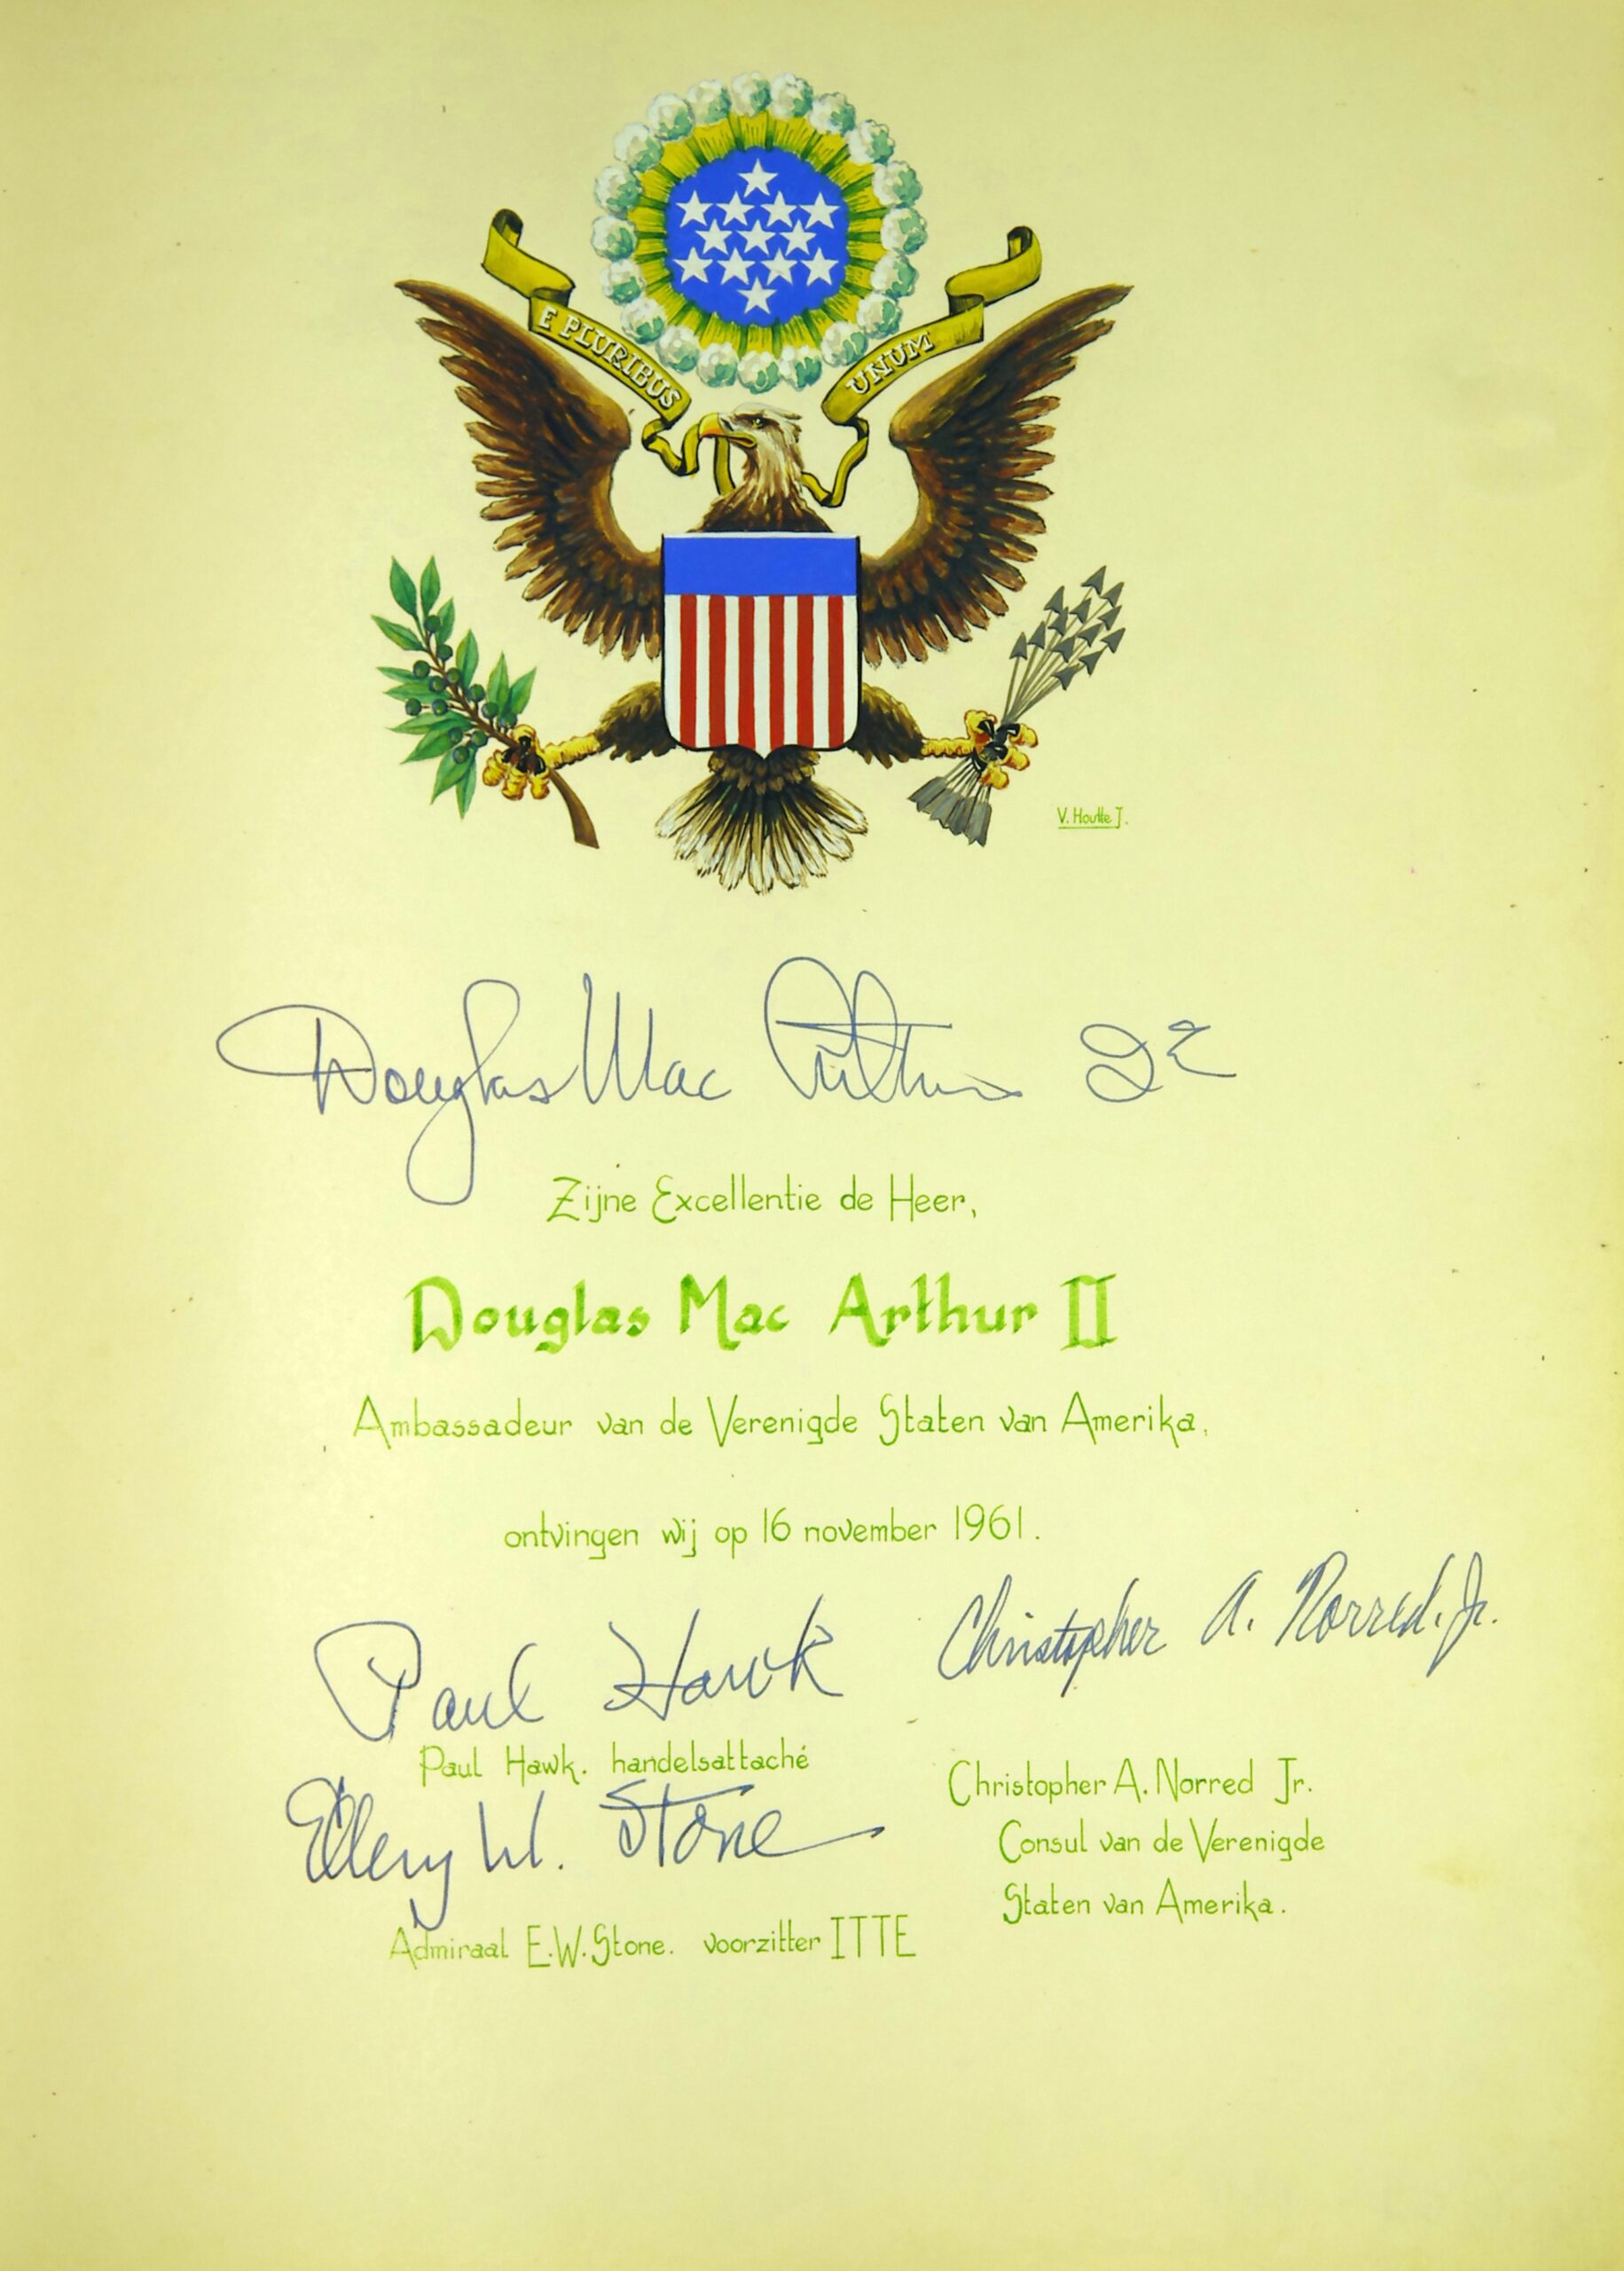 E PLURIBUS UNUM
V. Houtte J.
Douglas Mac Arthur 2ᵈ
Zijne Excellentie de Heer,
Douglas Mac Arthur II
Ambassadeur van de Verenigde Staten van Amerika,
ontvingen wij op 16 november 1961.
Paul Hawk
Christopher A. Norred. Jr.
Paul Hawk. handelsattaché
Ellery W. Stone
Admiraal E.W. Stone. voorzitter ITTE
Christopher A. Norred Jr.
Consul van de Verenigde
Staten van Amerika.